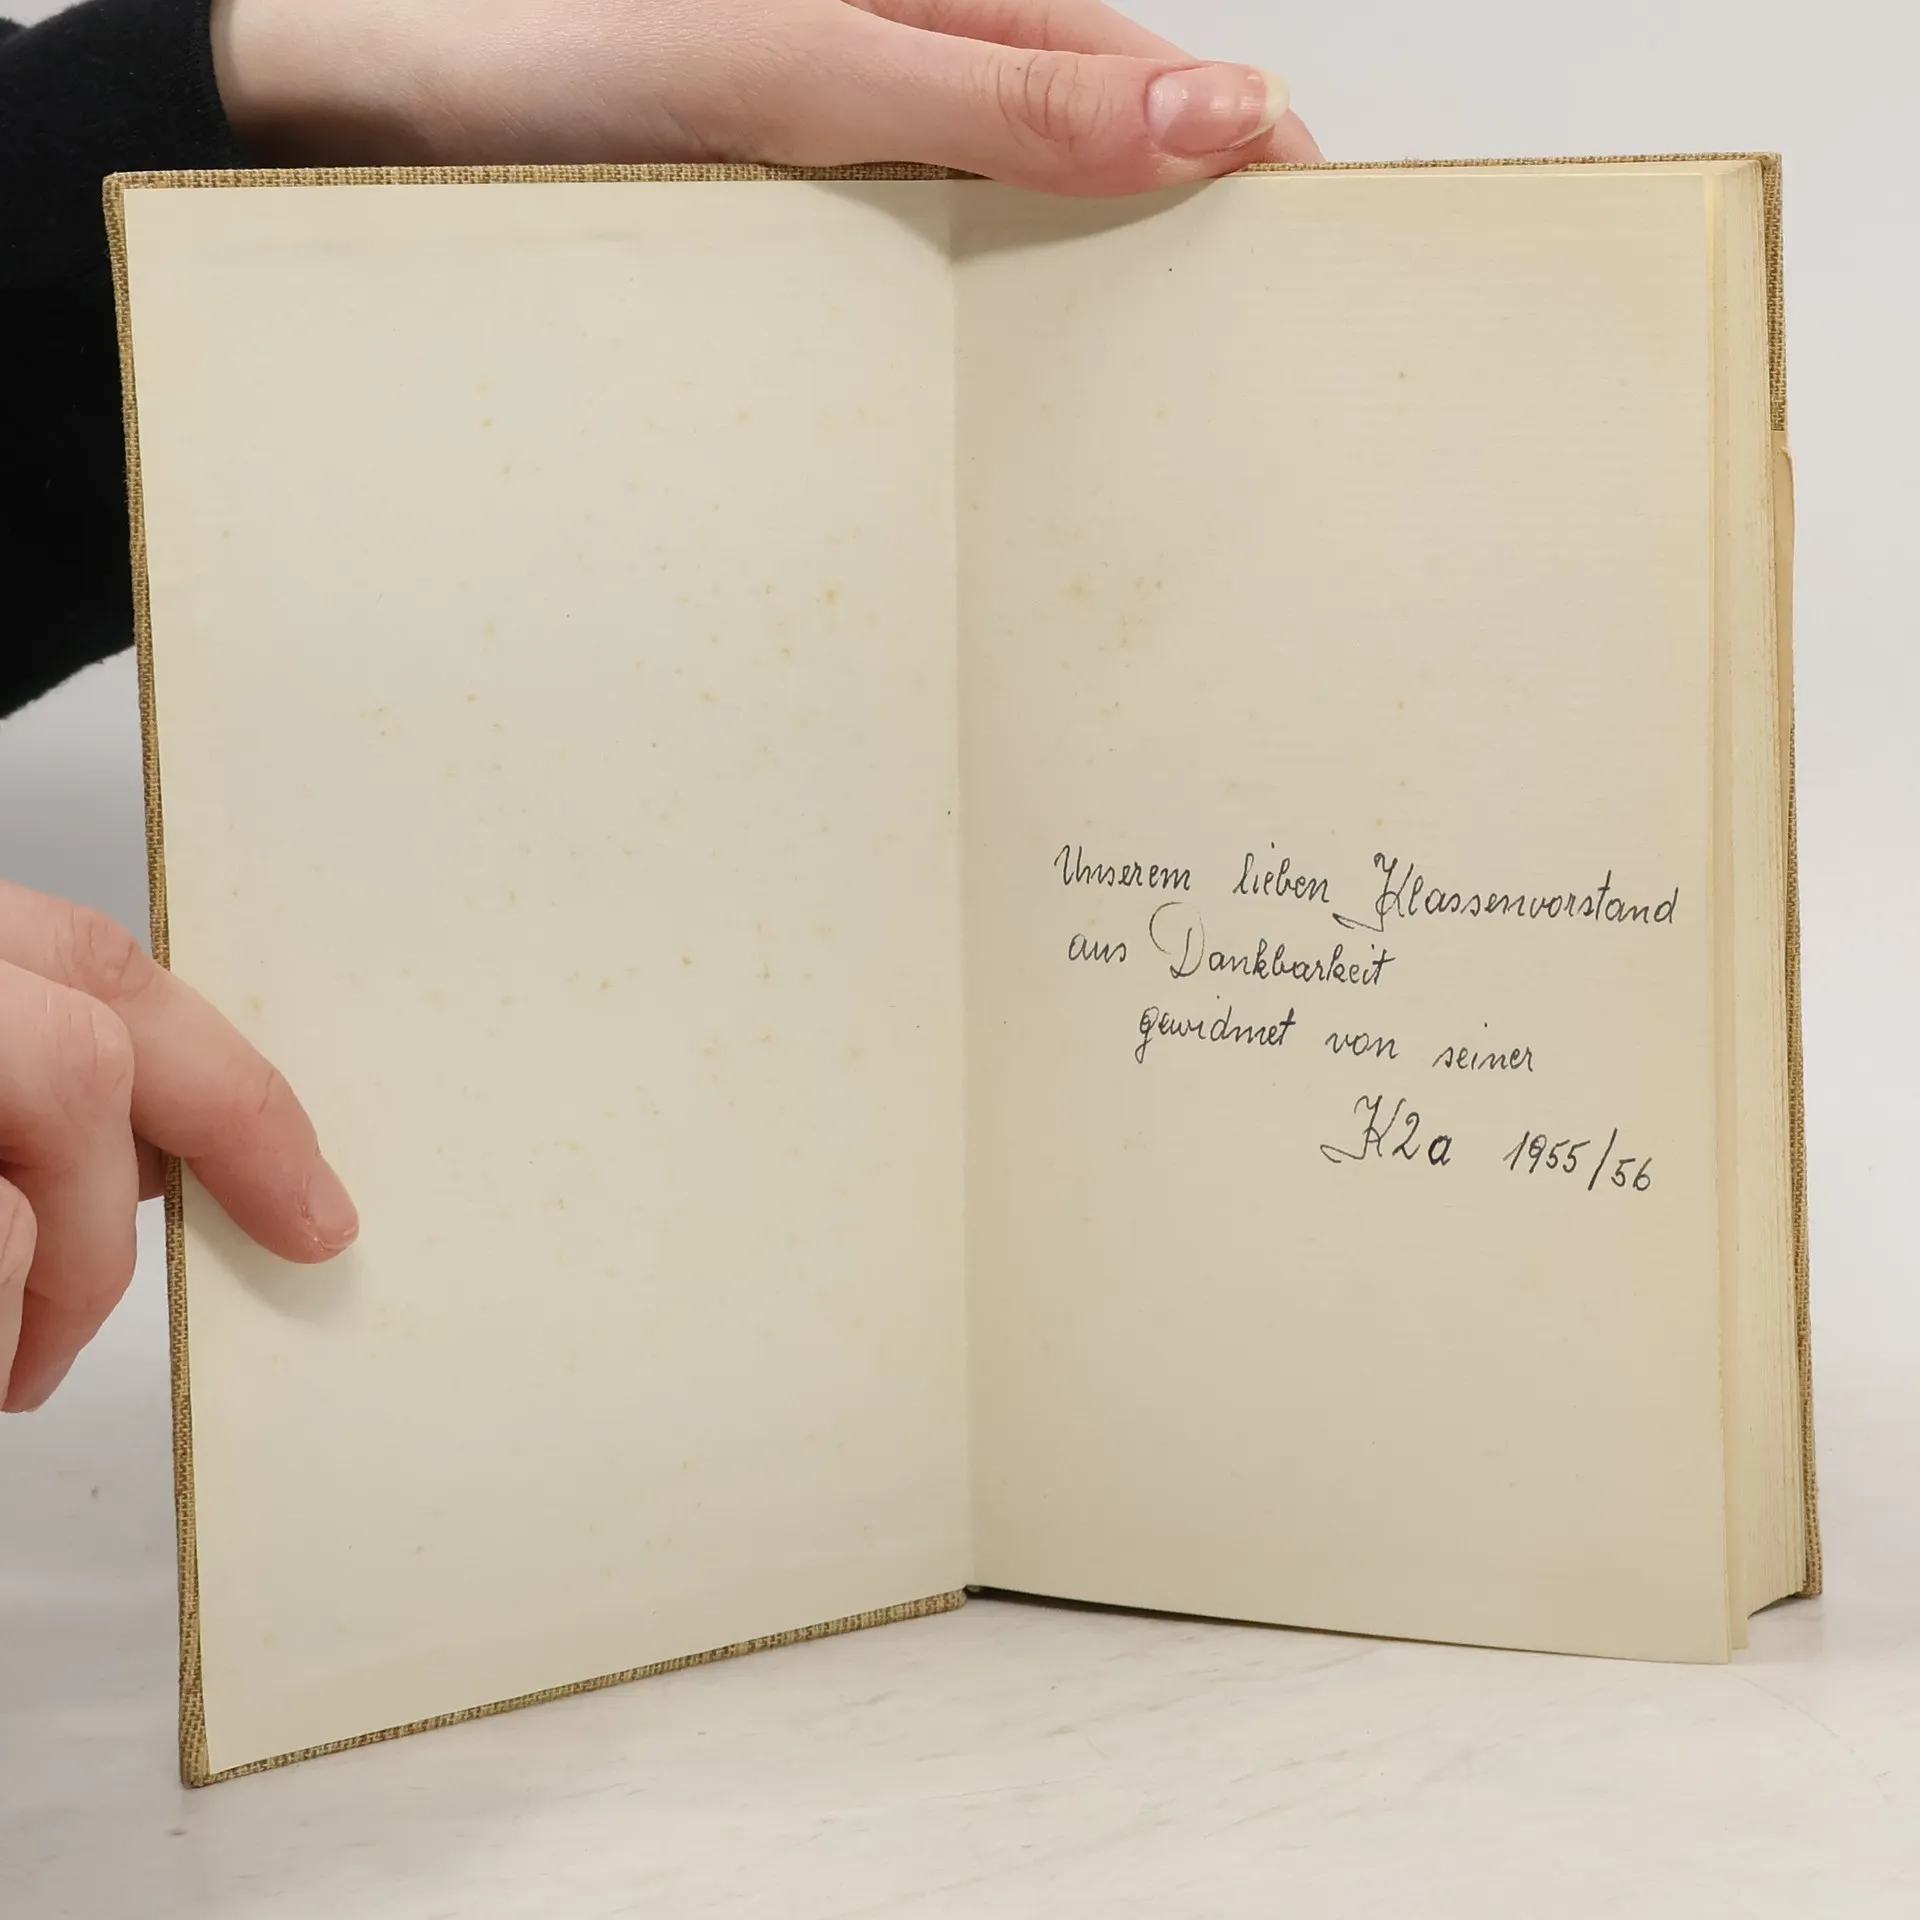 Unserem lieben Klassenvorstand
aus Dankbarkeit
gewidmet von seiner
K2a 1955/56